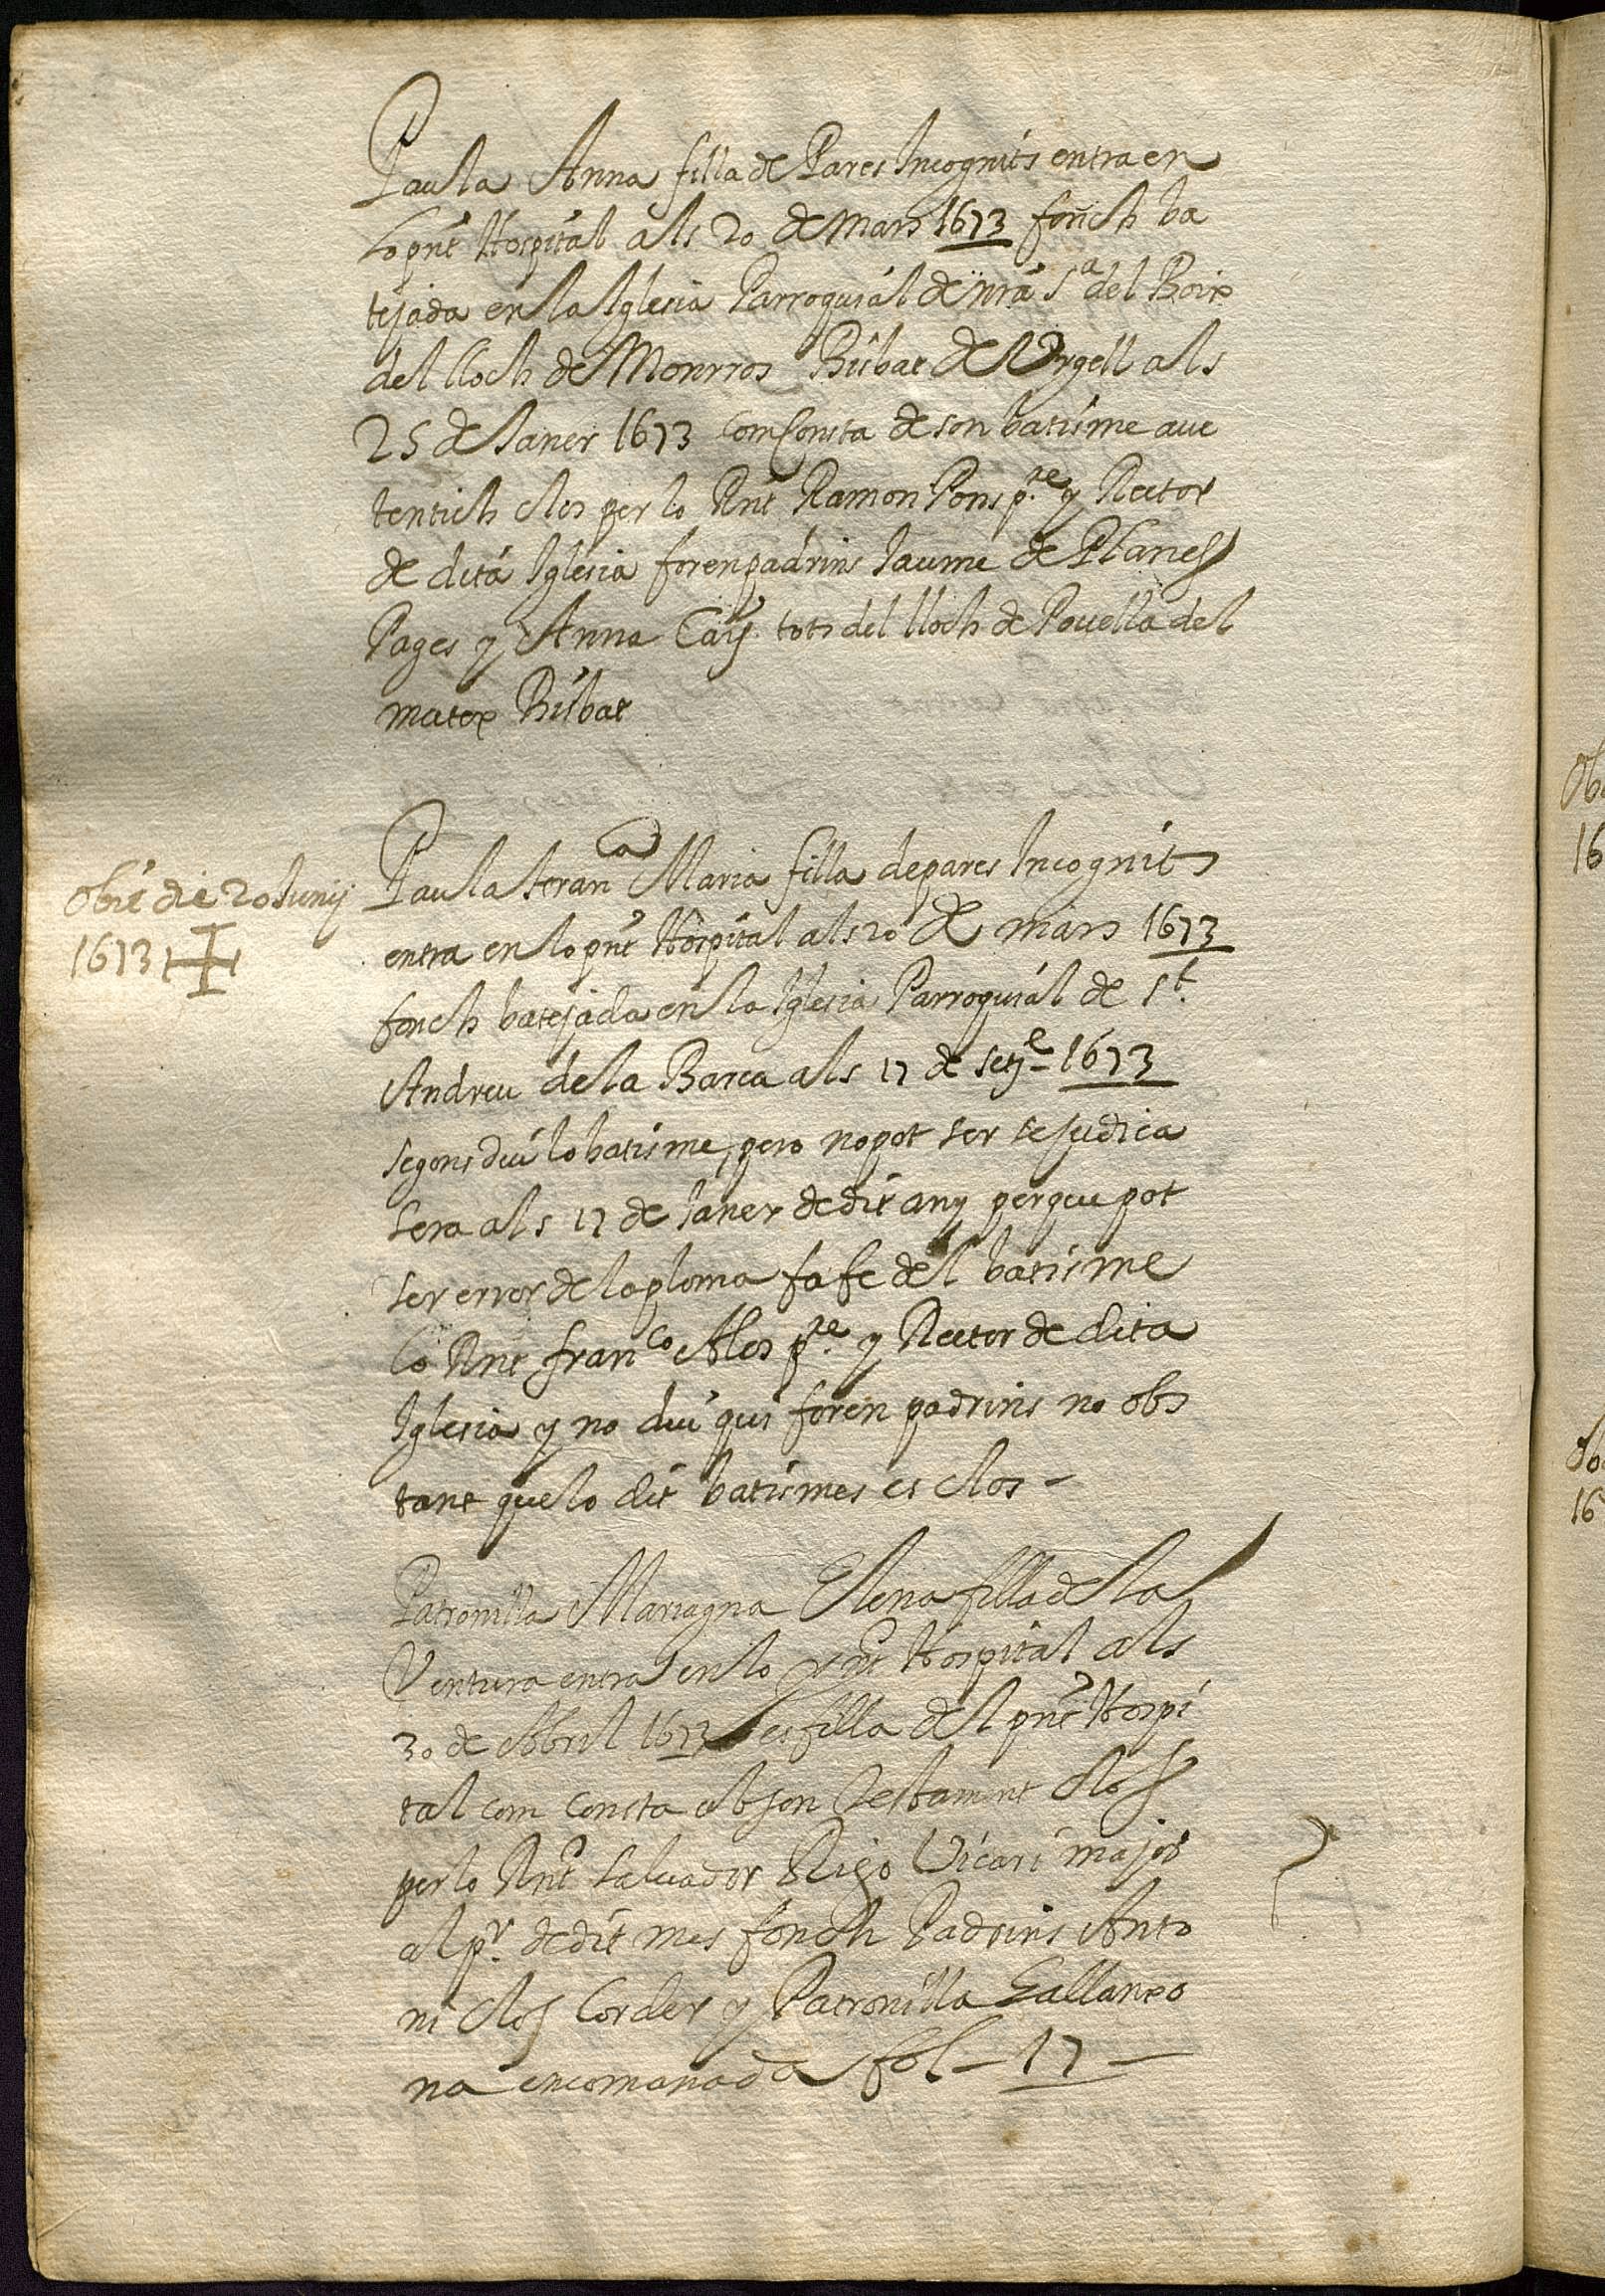 Paula Anna filla de Pares Incognits entra en
Lo pnt Hospital als 20 de Mars 1673 fonch ba
tejada en la Iglesia Parroquial de nra Sa del Boix
del lloch de Monrros Bisbat de Urgell als
25 de Janer 1673 com Consta de son batisme aue
tentich clos per lo Rnt Ramon Pons pre y Rector
de dita Iglesia foren padrins Jaume de Planes
Pages y Anna tots del lloch de Pouella del
mateix Bisbat
Obiit die 20 Junij
1673
Paula feranca Maria filla de pares Incognits
entra en lo pnt Hospital als 20 de mars 1673
fonch batejada en la Iglesia Parroquial de St.
Andreu de la Barca als 17 de sete 1673
segons diu lo batisme, pero no pot ser se judica
sera als 17 de Janer de dit any perque pot
ser error de la ploma fa fe del batisme
Lo Rnt franco Ales pre y Rector de dita
Iglesia y no diu qui foren padrins no obs
tant que lo dit batismes es clos -
Patronilla Mariagna Elena filla de la
Ventura entra en lo pnt Hospital als
30 de Abril 1673 es filla del pnt Hospi
tal com consta ab son Testament clos
per lo Rnt Saluador Rigo Vicari major
al pr. de dit mes fonch Padrins Anto
ni Clos Corder y Patronilla Gallanxo
na encomanada fol - 17 -
Ob
16
Ob
16